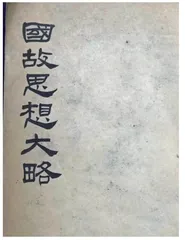 國故思想大略